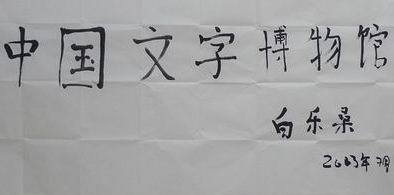 中国文字博物馆
白乐桑
2013年7月